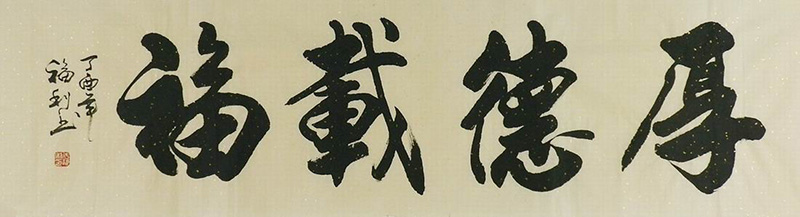 厚德載福
丁酉年
福利书